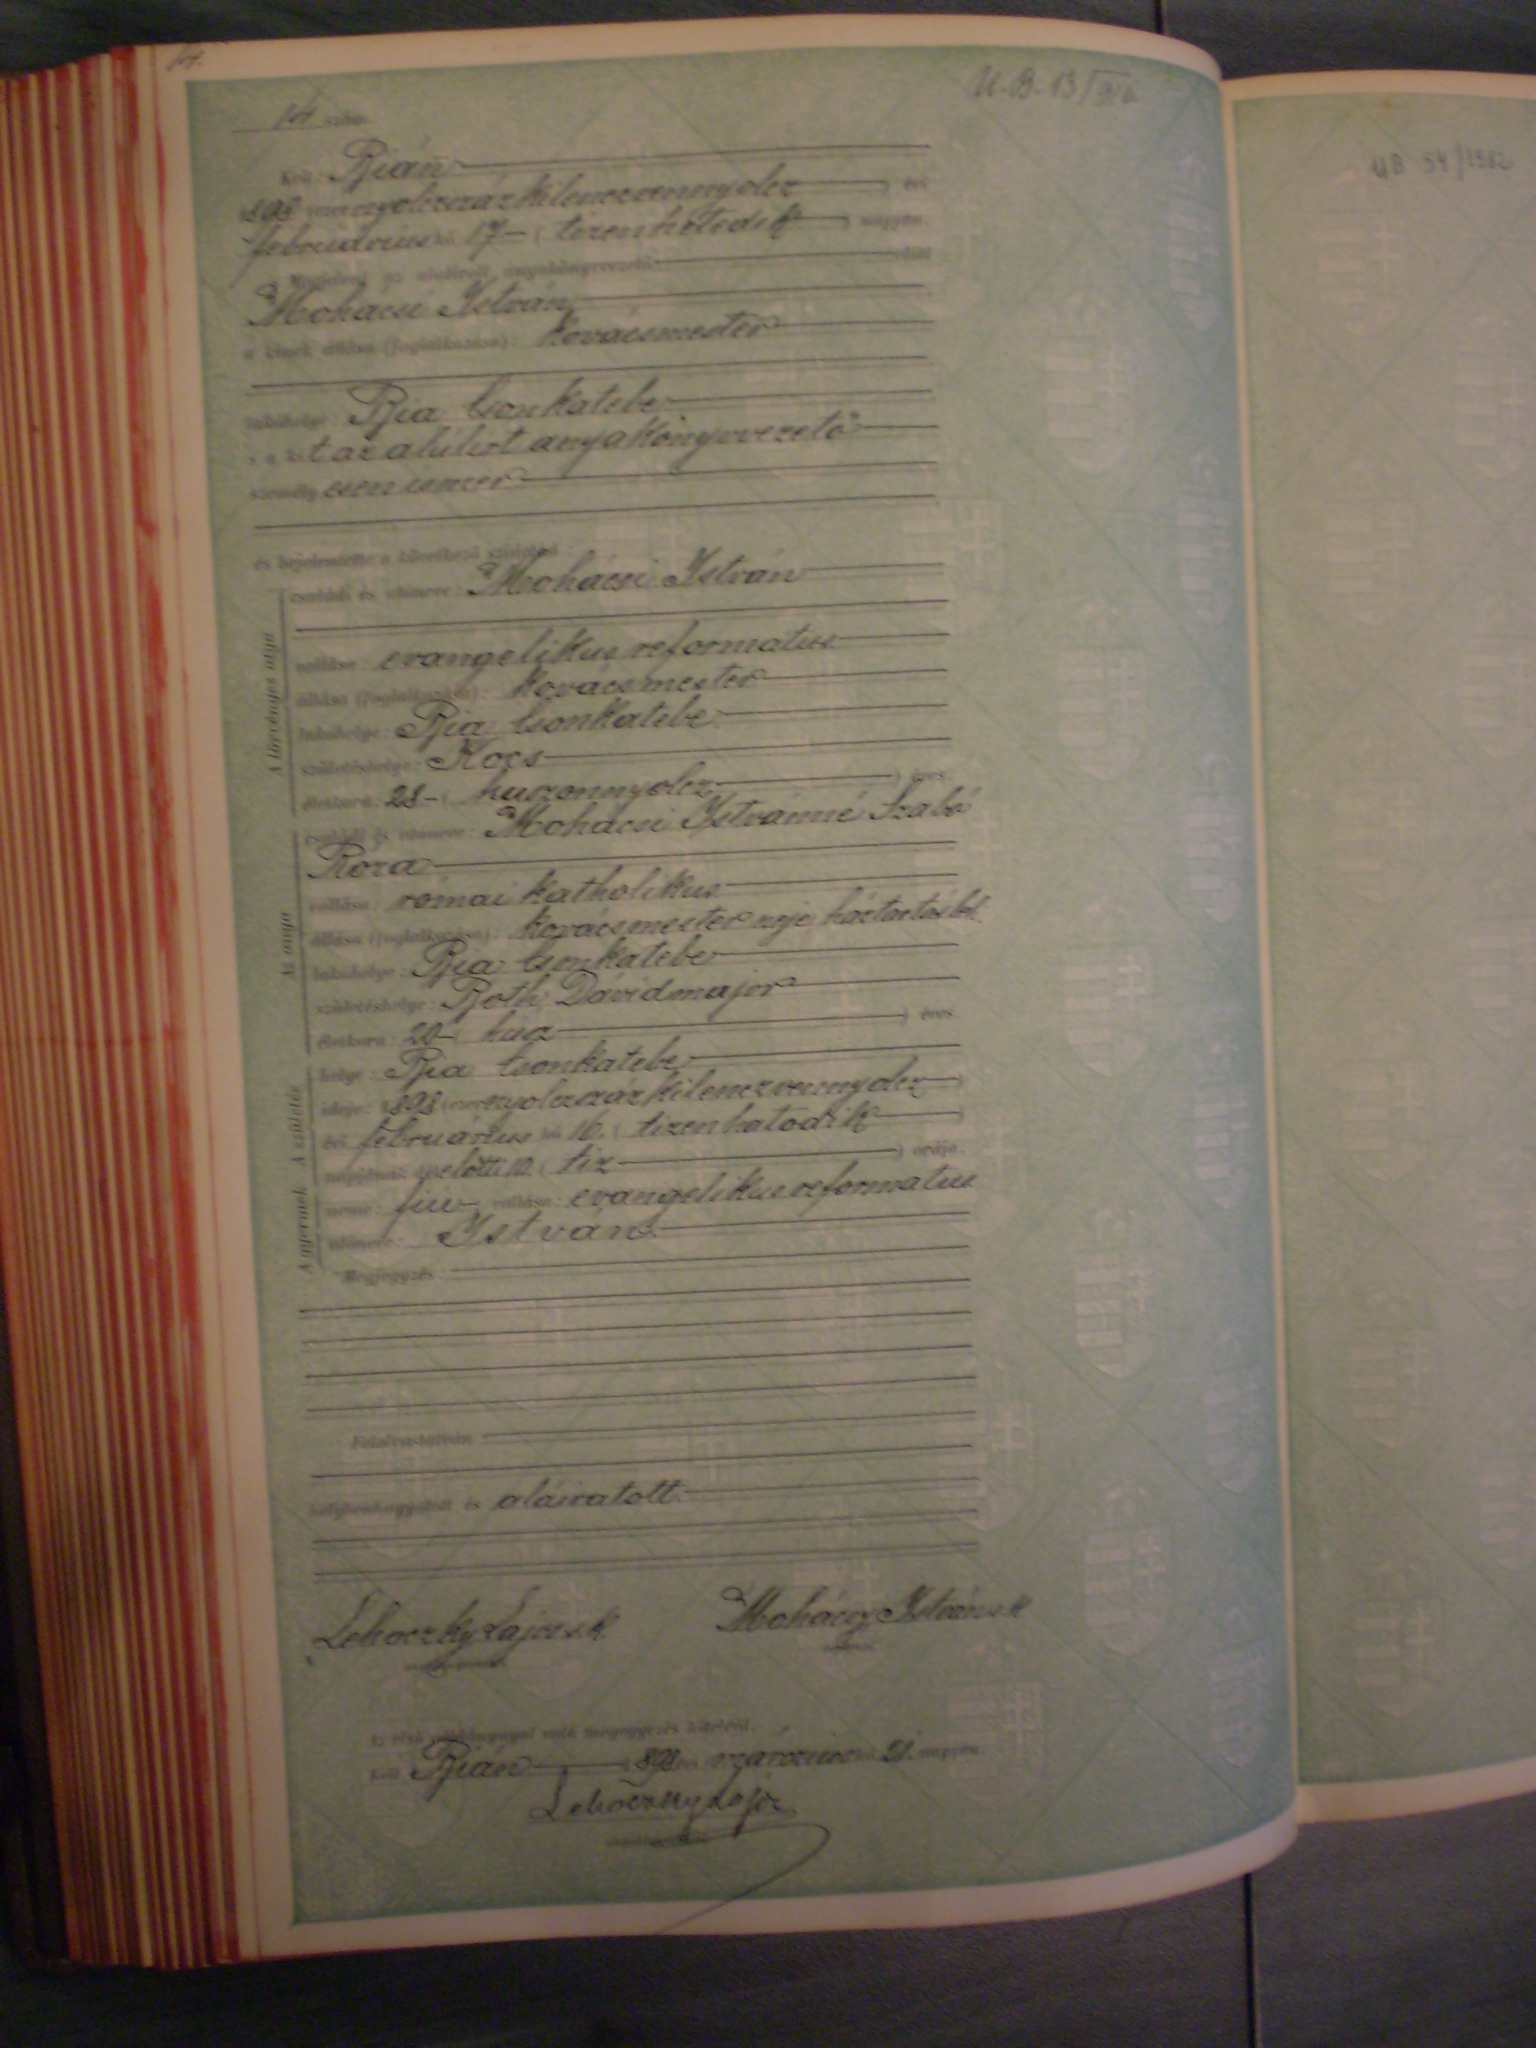 14.
U-B-13/
14 szám.
Kelt: Bián
1898 (ezernyolczszázkilenczvennyolcz) évi
februárius hó 17 (tizenhetedik) napján.
Megjelent az alulírott anyakönyvvezető előtt
Mohácsi István,
a kinek állása (foglalkozása): kovácsmester
lakóhelye: Bia Csonkatebe
s a kit az alulirt anyakönyvvezető
személyesen ismer
és bejelentette a következő születést:
A törvényes atya
családi és utóneve: Mohácsi István
vallása: evangelikus reformatus
állása (foglalkozása): kovácsmester
lakóhelye: Bia Csonkatebe
születéshelye: Kocs
életkora: 28 (huszonnyolcz) éves.
Az anya
családi és utóneve: Mohácsi Istvánné Szabó
Róza
vallása: római katholikus
állása (foglalkozása): kovácsmester neje háztartásbel
lakóhelye: Bia Csonkatebe
születéshelye: Both, Dávidmajor
életkora: 20 (husz) éves.
A gyermek A születés
helye: Bia Csonkatebe
ideje: 1898 (ezernyolczszázkilenczvennyolcz)
évi februárius hó 16. (tizenhatodik)
napjának délelőtti 10. (tiz) órája.
neme: fiu vallása: evangelikus reformatus
utóneve: István
Megjegyzés:
Felolvastatván
helybenhagyatott és aláiratott.
Lehoczky Lajos s.k. Mohácsy István s.k.
Az első példánynyal való megegyezés hiteléül.
Kelt Bián 1898 évi márczius hó 21. napján.
Lehoczky Lajos
UB 54/1982